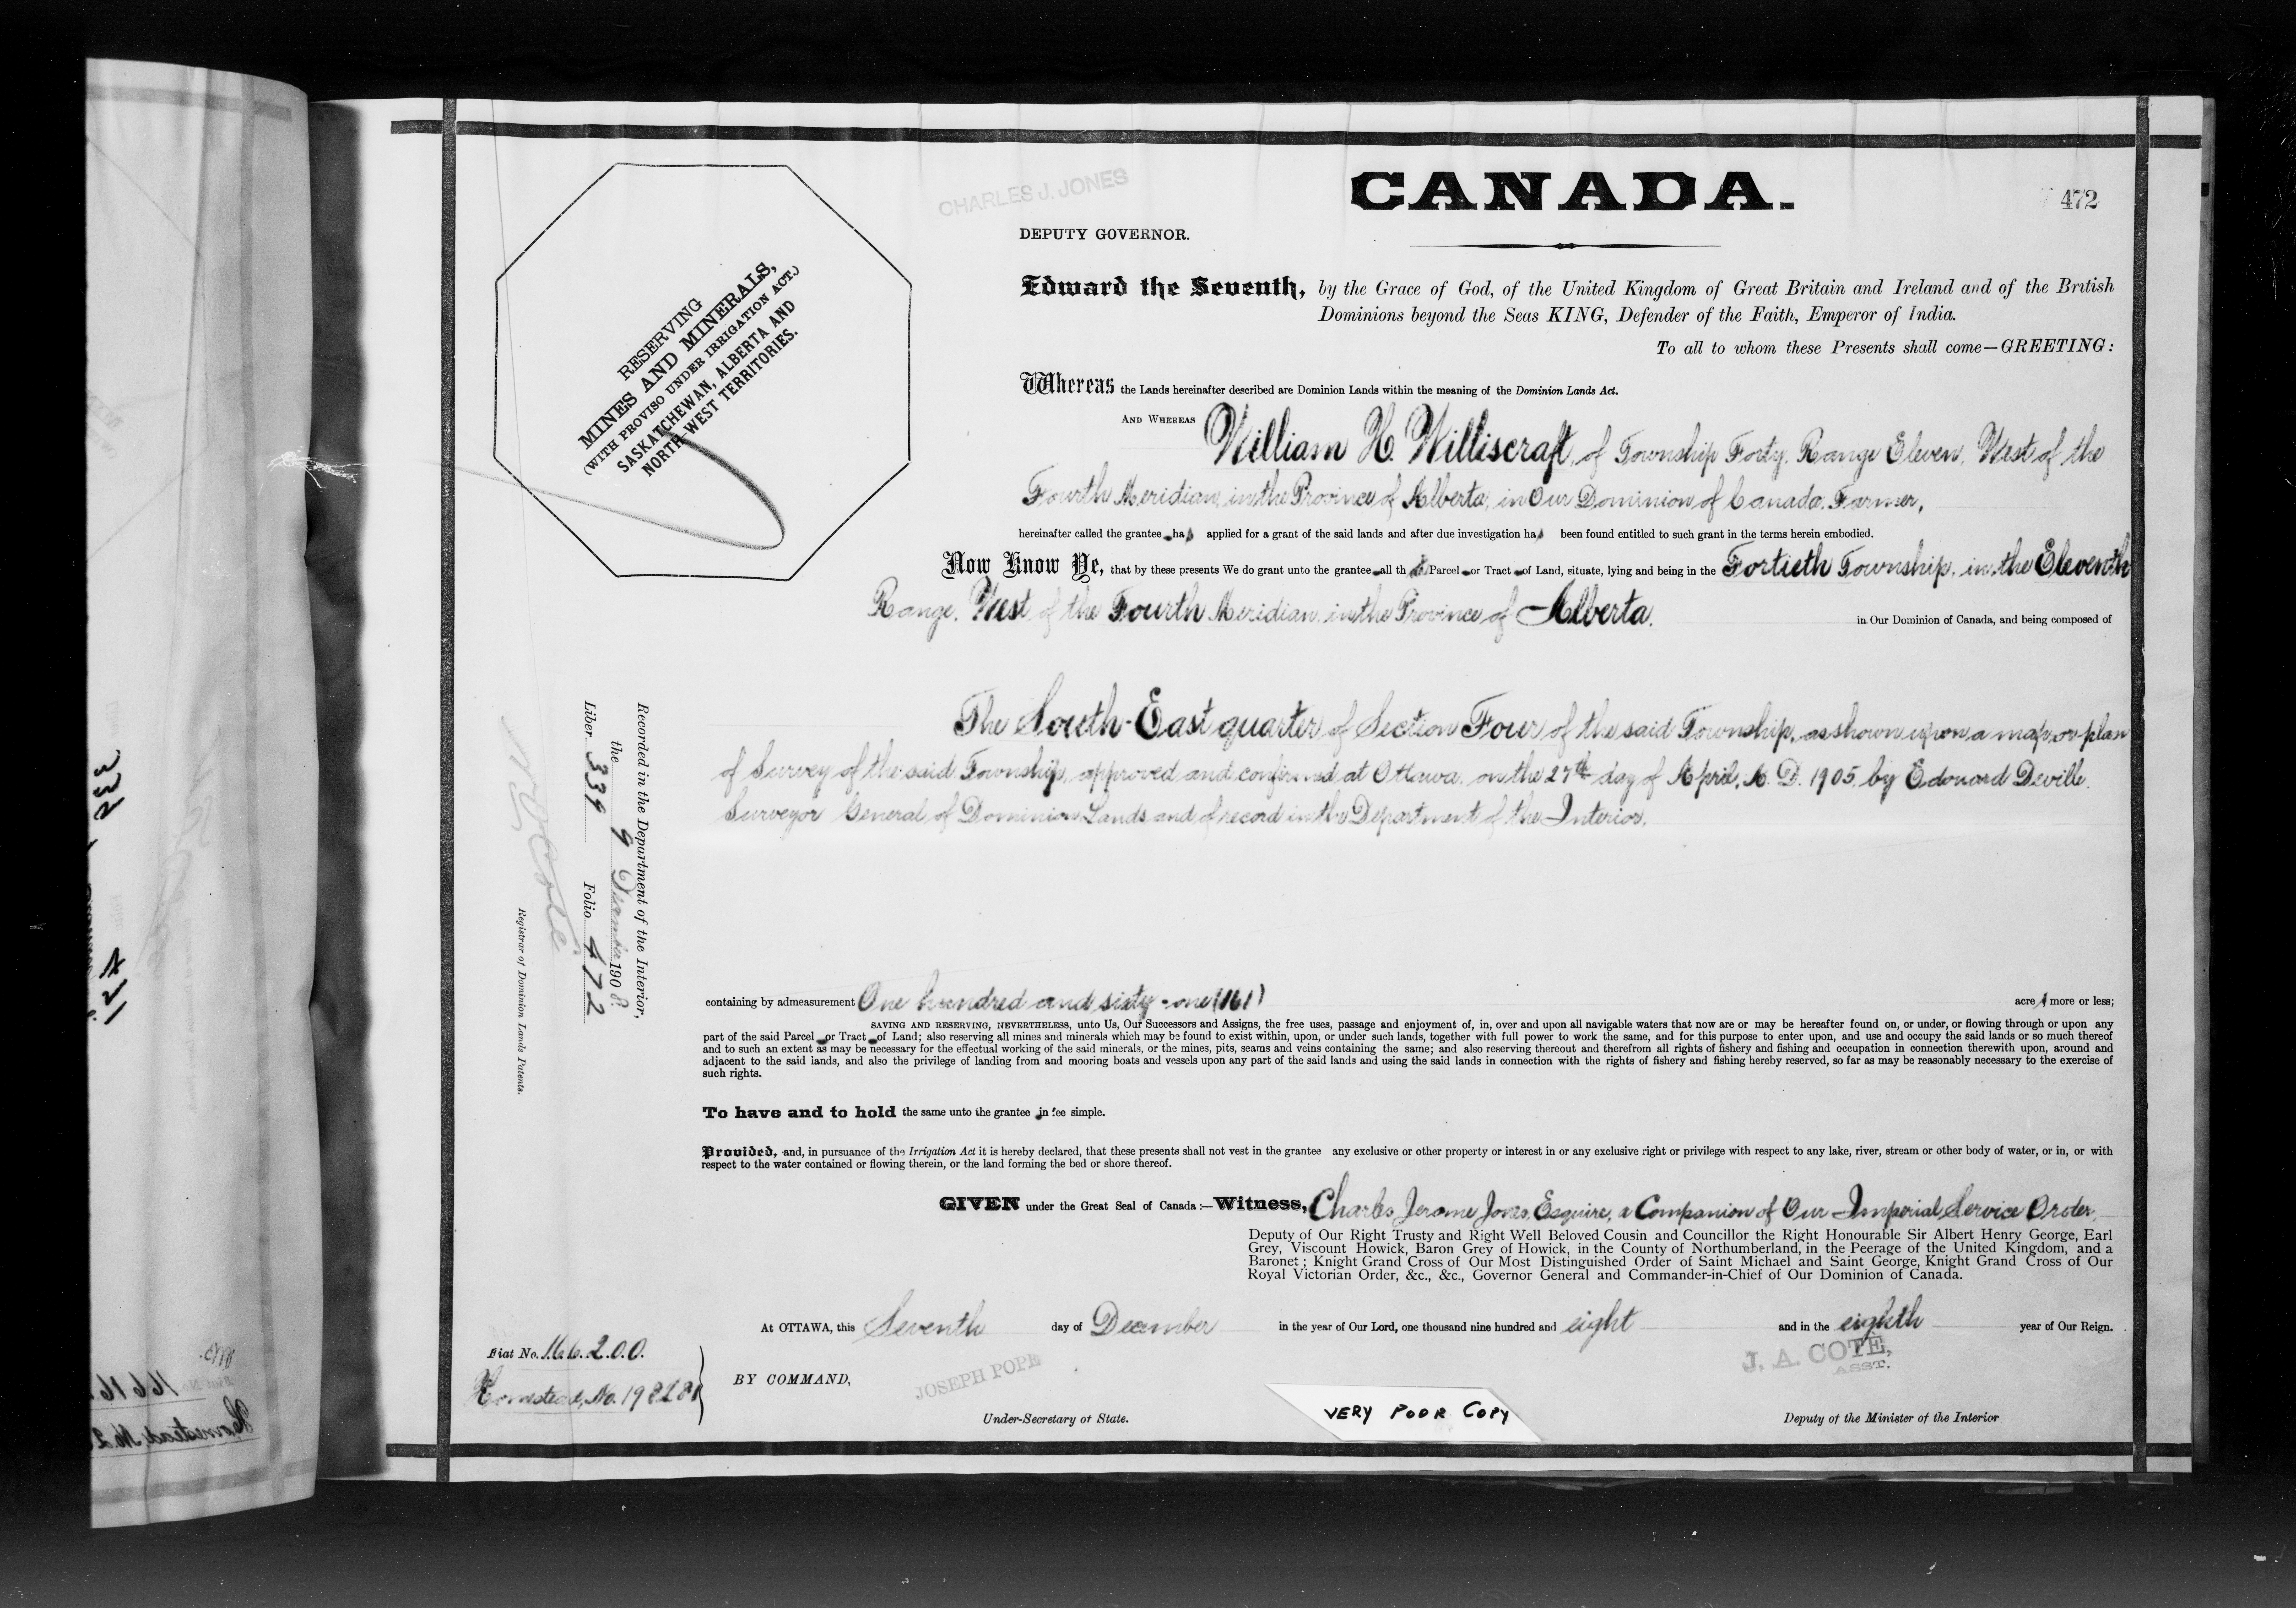 CANADA.
472
CHARLES J. JONES
DEPUTY GOVERNOR.
RESERVING
MINES AND MINERALS,
(WITH PROVISO UNDER IRRIGATION ACT.)
SASKATCHEWAN, ALBERTA AND
NORTH-WEST TERRITORIES.
Edward the Seventh, by the Grace of God, of the United Kingdom of Great Britain and Ireland and of the British
Dominions beyond the Seas KING, Defender of the Faith, Emperor of India.
To all to whom these Presents shall come—GREETING:
Whereas the Lands hereinafter described are Dominion Lands within the meaning of the Dominion Lands Act.
AND WHEREAS William H. Williscraft, of Township Forty, Range Eleven, West of the
Fourth Meridian, in the Province of Alberta, in Our Dominion of Canada, Farmer,
hereinafter called the grantee ha applied for a grant of the said lands and after due investigation ha been found entitled to such grant in the terms herein embodied.
Now Know Ye, that by these presents We do grant unto the grantee all th Parcel or Tract of Land, situate, lying and being in the Fortieth Township, in the Eleventh
Range, West of the Fourth Meridian, in the Province of Alberta, in Our Dominion of Canada, and being composed of
The South-East quarter of Section Four of the said Township, as shown upon a map or plan
of Survey of the said Township, approved and confirmed at Ottawa, on the 27th day of April, A. D. 1905, by Edouard Deville,
Surveyor General of Dominion Lands and of record in the Department of the Interior.
Recorded in the Department of the Interior,
the 9 December 1908.
Liber 339 Folio 472
Registrar of Dominion Lands Patents.
containing by admeasurement One hundred and sixty-one (161) acre more or less;
SAVING AND RESERVING, NEVERTHELESS, unto Us, Our Successors and Assigns, the free uses, passage and enjoyment of, in, over and upon all navigable waters that now are or may be hereafter found on, or under, or flowing through or upon any
part of the said Parcel or Tract of Land; also reserving all mines and minerals which may be found to exist within, upon, or under such lands, together with full power to work the same, and for this purpose to enter upon, and use and occupy the said lands or so much thereof
and to such an extent as may be necessary for the effectual working of the said minerals, or the mines, pits, seams and veins containing the same; and also reserving thereout and therefrom all rights of fishery and fishing and occupation in connection therewith upon, around and
adjacent to the said lands, and also the privilege of landing from and mooring boats and vessels upon any part of the said lands and using the said lands in connection with the rights of fishery and fishing hereby reserved, so far as may be reasonably necessary to the exercise of
such rights.
To have and to hold the same unto the grantee in fee simple.
Provided, and, in pursuance of the Irrigation Act it is hereby declared, that these presents shall not vest in the grantee any exclusive or other property or interest in or any exclusive right or privilege with respect to any lake, river, stream or other body of water, or in, or with
respect to the water contained or flowing therein, or the land forming the bed or shore thereof.
GIVEN under the Great Seal of Canada:—Witness, Charles Jerome Jones, Esquire, a Companion of Our Imperial Service Order,
Deputy of Our Right Trusty and Right Well Beloved Cousin and Councillor the Right Honourable Sir Albert Henry George, Earl
Grey, Viscount Howick, Baron Grey of Howick, in the County of Northumberland, in the Peerage of the United Kingdom, and a
Baronet; Knight Grand Cross of Our Most Distinguished Order of Saint Michael and Saint George, Knight Grand Cross of Our
Royal Victorian Order, &c., &c., Governor General and Commander-in-Chief of Our Dominion of Canada.
At OTTAWA, this Seventh day of December in the year of Our Lord, one thousand nine hundred and eight and in the eighth year of Our Reign.
Fiat No. 166200.
Homestead, No.
BY COMMAND,
JOSEPH POPE
Under-Secretary of State.
VERY POOR COPY
J. A. COTE,
ASST.
Deputy of the Minister of the Interior